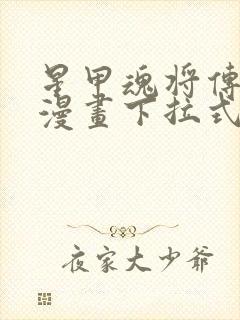 星甲魂将傳
漫畫下拉式
夜家大少爺